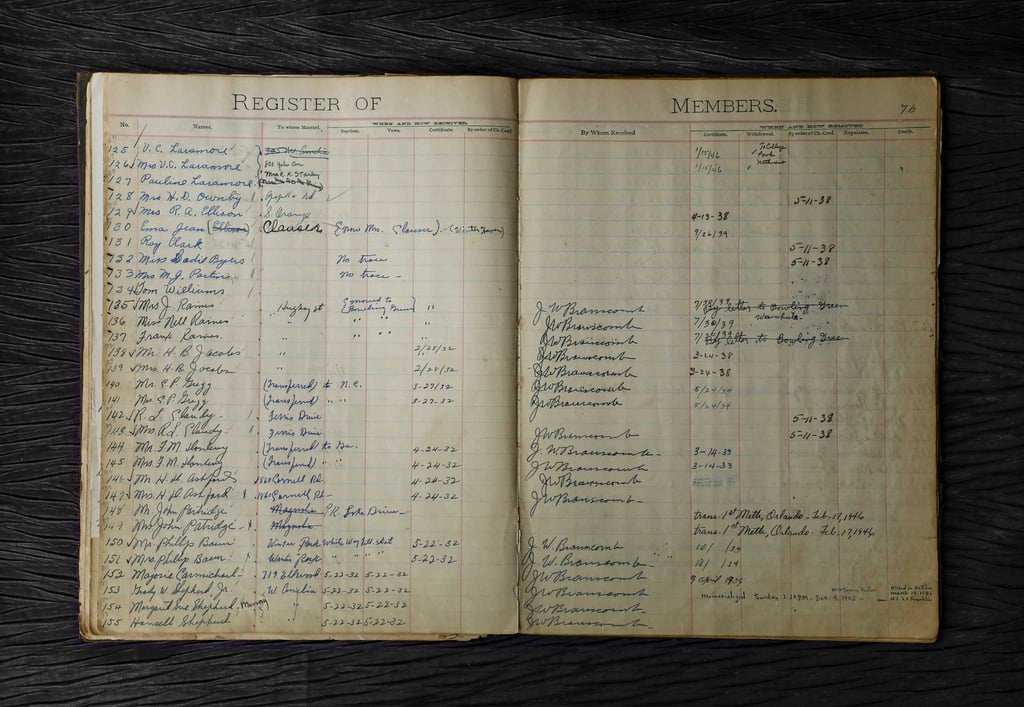 REGISTER OF MEMBERS. 76
WHEN AND HOW RECEIVED.
No. Names. To whom Married. Baptism. Vows. Certificate. By order of Ch. Conf.
WHEN AND HOW REMOVED
By Whom Received Certificate. Withdrawal. By order of Ch. Conf. Expulsion. Death.
125 V. C. Laramore 1/15/46 To College Park
126 Mrs V. C. Laramore 1/15/46 "
127 Pauline Laramore
128 Mrs H. D. Ownby 5-11-38
129 Mrs R. A. Ellison S. Orange 4-13-38
130 Erna Jean (Ellison) Clauser (now Mrs. Clauser). (Winter Haven) 9/26/39
131 Roy Clark 5-11-38
132 Miss Sadie Byers No trace 5-11-38
133 Mrs M. J. No trace -
134 Tom Williams
135 Mrs J. Raines (moved to Bowling Green) " J W Branscomb By letter to Bowling Green
136 Miss Nell Raines " " " JW Branscomb 7/30/39 Wauchula
137 Frank Raines " " " JW Branscomb By letter to Bowling Green
138 Mr. H. B. Jacobs " 2/28/32 JW Branscomb 3-24-38
139 Mrs H. B. Jacobs " 2/28/32 JW Branscomb 3-24-38
140 Mr. E. P. Gregg (Transferred) to N. C. 3-27/32 JW Branscomb 5/24/34
141 Mrs. E. P. Gregg (Transferred) " " 3-27-32 JW Branscomb 5/24/34
142 R. L. Ferris Drive 5-11-38
143 Mrs. R. L. Ferris Drive JW Branscomb 5-11-38
144 Mr. F. M. (Transferred) to Ga. 4-24-32 J. W. Branscomb 3-14-33
145 Mrs. F. M. (Transferred) " " 4-24-32 JW Branscomb 3-14-33
146 Mr. H. H. Ashford 1860 Cornell Rd. 4-24-32 JW Branscomb
147 Mrs. H. H. Ashford 1860 Cornell Rd. 4-24-32 JW Branscomb
148 Mr. John Patridge Magnolia P.R. Lake Drive trans. 1st Meth, Orlando. Feb. 17, 1946
149 Mrs John Patridge Magnolia trans. 1st Meth, Orlando. Feb. 17, 1946
150 Mr. Phillip Baum Winter Park 5-22-32 J. W. Branscomb 10/ /34
151 Mrs. Phillip Baum Winter Park 5-22-32 J. W. Branscomb 10/ /34
152 Marjorie Carmichael 719 Elkwood 5-22-32 5-22-32 JW Branscomb 9 April 1935
153 Grady W. Shepherd, Jr. W. Comelia 5-22-32 5-22-32 JW Branscomb Killed in Action March 19, 1945 U.S.S. Franklin
154 Margaret Sue Shepherd " 5-22-32 5-22-32 JW Branscomb Memorialized Sunday
155 Hansell Shepherd " 5-22-32 5-22-32 JW Branscomb